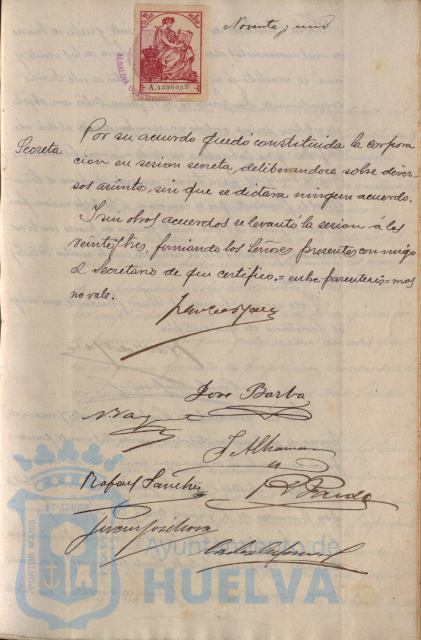 Noventa y uno
A.4390035
ALCALDIA
Secreta
Por su acuerdo quedó constituida la corpora
cion en sesion secreta, deliberandose sobre diver-
sos asunto, sin que se dictara ningun acuerdo.
I sin otros acuerdos se levantó la sesion á las
veintitres, firmando los Señores presentes conmigo
el Secretario de que certifico.= entre parentesis= mas
no vale.
José Barba
J Alhaman
Rafael Sanchez
PORTUS MARIS
ET TERRE
CUSTODIA
Ayuntamiento de
HUELVA